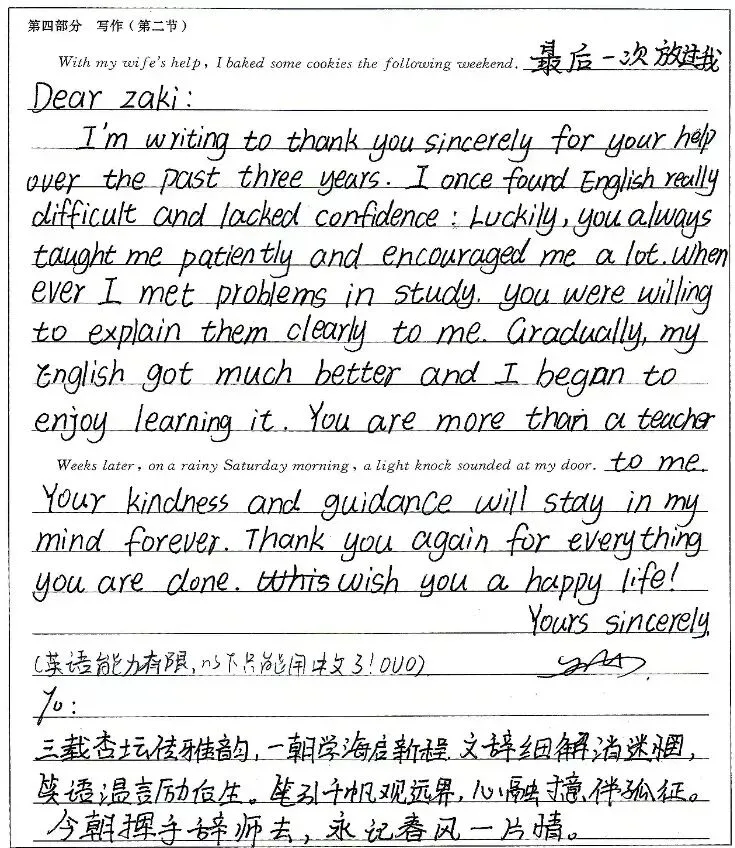 第四部分 写作(第二节)
With my wife's help, I baked some cookies the following weekend. 最后一次放过我
Dear zaki:
I'm writing to thank you sincerely for your help
over the past three years. I once found English really
difficult and lacked confidence: Luckily, you always
taught me patiently and encouraged me a lot. When
ever I met problems in study. you were willing
to explain them clearly to me. Gradually, my
English got much better and I began to
enjoy learning it. You are more than a teacher
Weeks later, on a rainy Saturday morning, a light knock sounded at my door. to me.
Your kindness and guidance will stay in my
mind forever. Thank you again for everything
you are done. wish you a happy life!
Yours sincerely,
(英语能力有限,以下只能用中文了!OUO)
To:
三载杏坛传雅韵,一朝学海启新程.文辞细解消迷惘,
笑语温言励后生。笔引千帆观远界,心融情伴孤征。
今朝挥手辞师去,永记春风一片情。